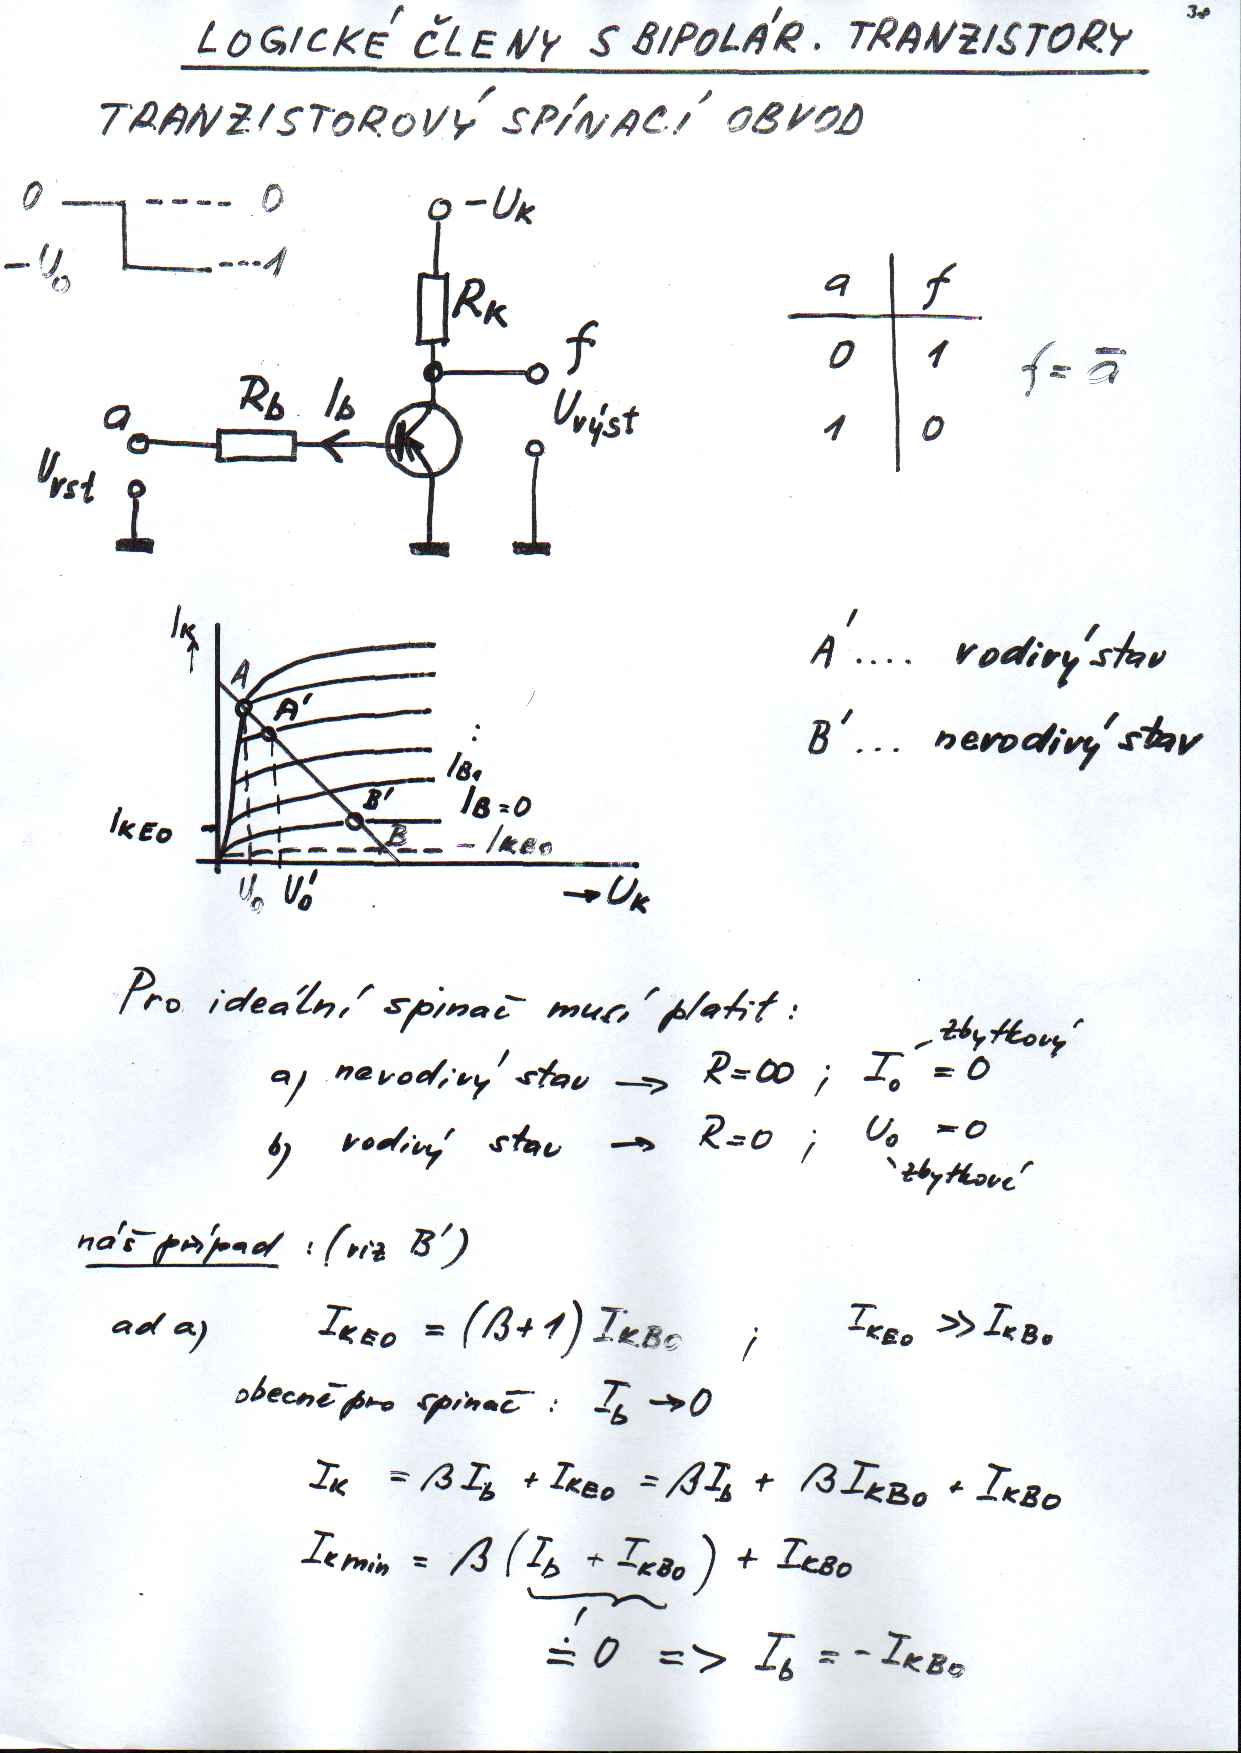 38
LOGICKÉ ČLENY S BIPOLÁR. TRANZISTORY
TRANZISTOROVÝ SPÍNACÍ OBVOD
0 0
-U₀ 1
-Uк
Rк
f
Uvýst
a
Rb
Ib
Uvst
a f
0 1
1 0
f = a̅
Iк
A
A'
B'
B
IB1
IB=0
IKE0
- IKB0
U₀ U₀'
→ Uк
A' .... vodivý stav
B' ... nevodivý stav
Pro ideální spínač musí platit:
zbytkový
a) nevodivý stav → R=∞ ; I₀ = 0
b) vodivý stav → R=0 ; U₀ = 0
zbytkové
náš případ : (viz B')
ad a) IKE0 = (β+1) IKB0 ; IKE0 ≫ IKB0
obecně pro spínač : Ib → 0
IK = βIb + IKE0 = βIb + βIKB0 + IKB0
IKmin = β (Ib + IKB0) + IKB0
≐ 0 => Ib = -IKB0